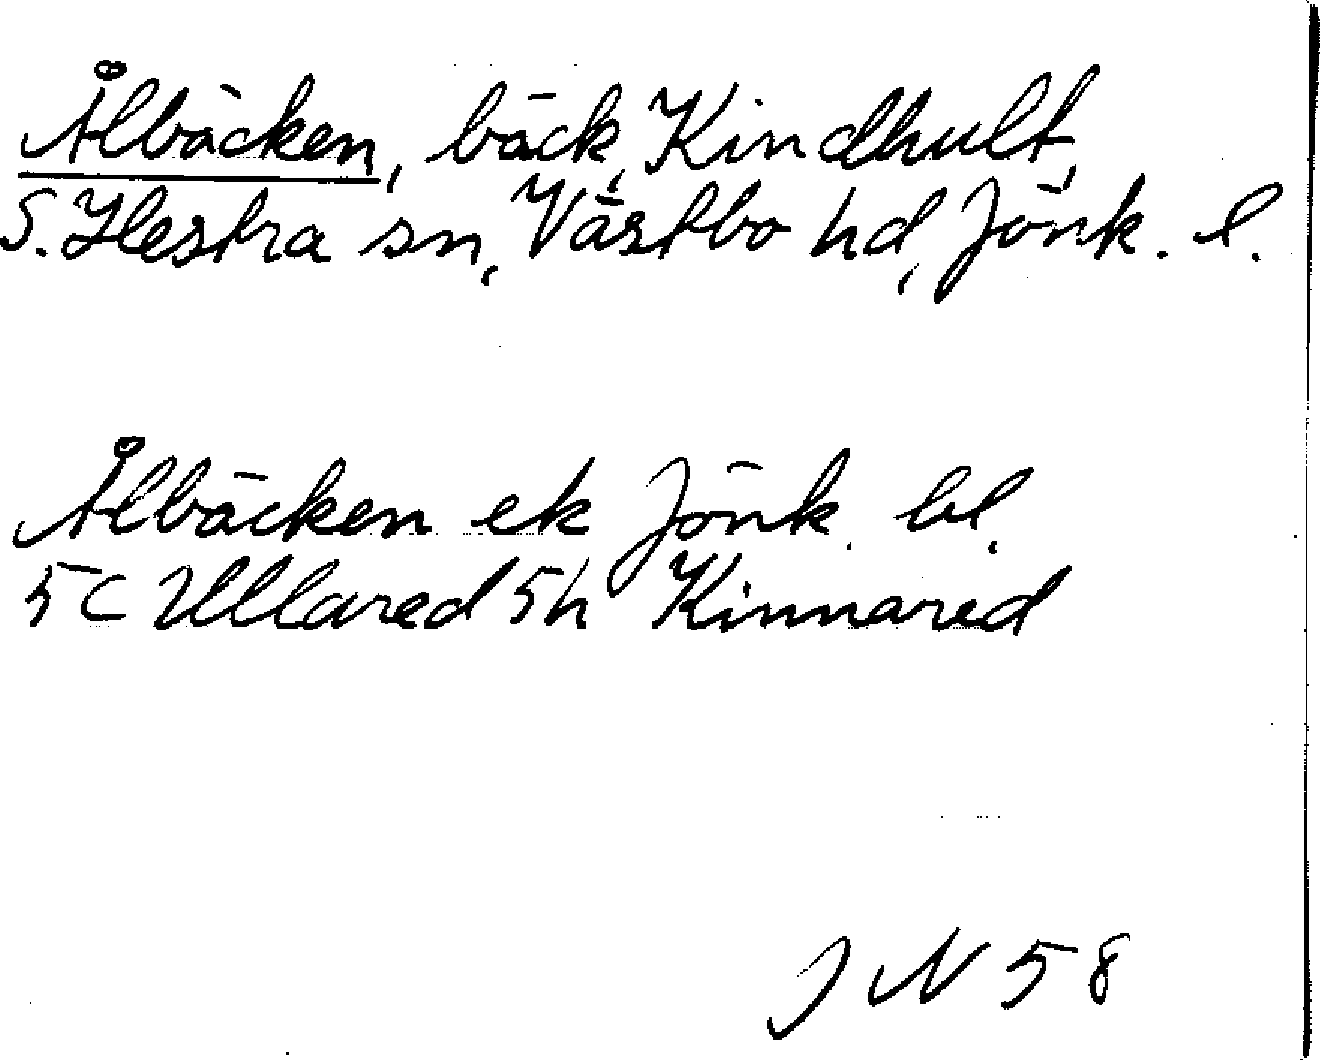 Ålbäcken, bäck, Kindhult,
S. Hestra sn, Västbo hd, Jönk. l.
Ålbäcken ek Jönk. bl.
5C Ullared 5h Kinnared
J N 58